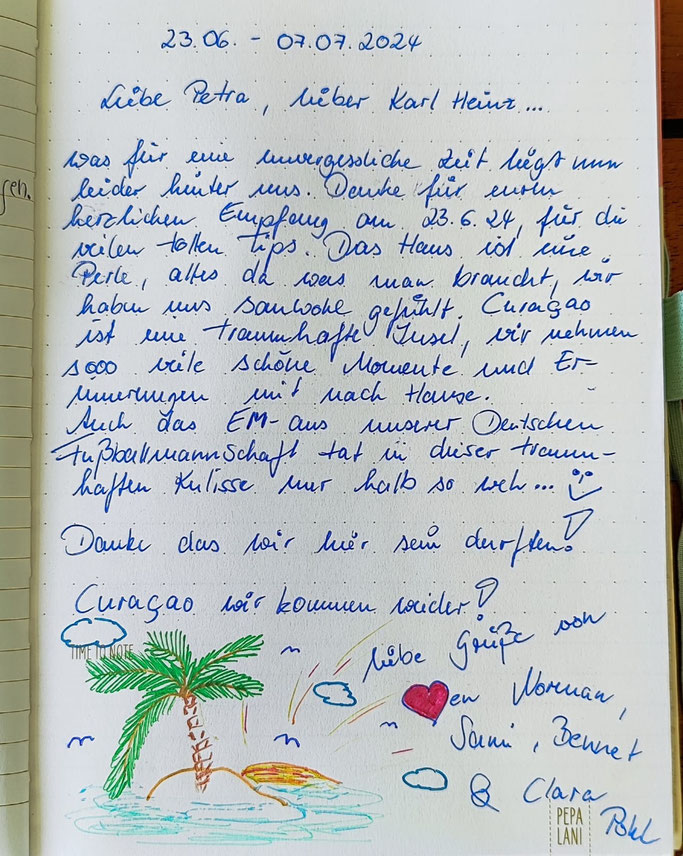 fen.
23.06. - 07.07.2024
Liebe Petra, lieber Karl Heinz...
was für eine unvergessliche Zeit liegt nun
leider hinter uns. Danke für euren
herzlichen Empfang am 23.6.24, für die
vielen tollen Tips. Das Haus ist eine
Perle, alles da was man braucht, wir
haben uns sauwohl gefühlt. Curaçao
ist eine traumhafte Insel, wir nehmen
sooo viele schöne Momente und Er-
innerungen mit nach Hause.
Auch das EM-aus unserer Deutschen
Fußballmannschaft tat in dieser traum-
haften Kulisse nur halb so weh...
Danke das wir hier sein durften!
Curaçao wir kommen wieder!
TIME TO NOTE
liebe Grüße von
en Norman,
Sami, Bennet
& Clara
PEPA
LANI